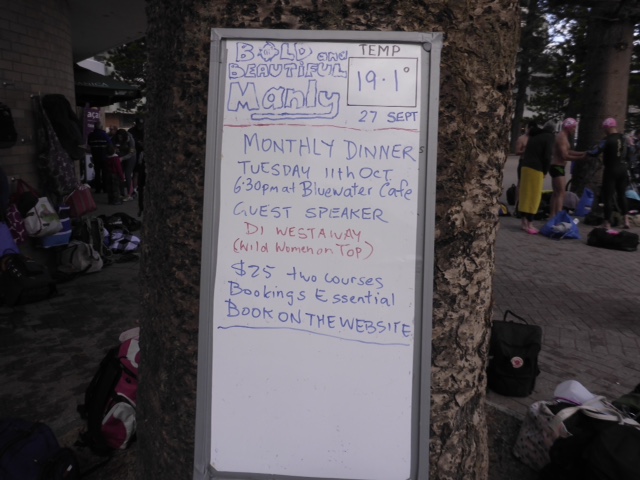 BOLD and
BEAUTIFUL
Manly
TEMP
19.1°
27 SEPT
MONTHLY DINNERS
TUESDAY 11th OCT
6:30pm at Bluewater Cafe
GUEST SPEAKER
DI WESTAWAY
(Wild Women on Top)
$25 two courses
Bookings Essential
BOOK ON THE WEBSITE